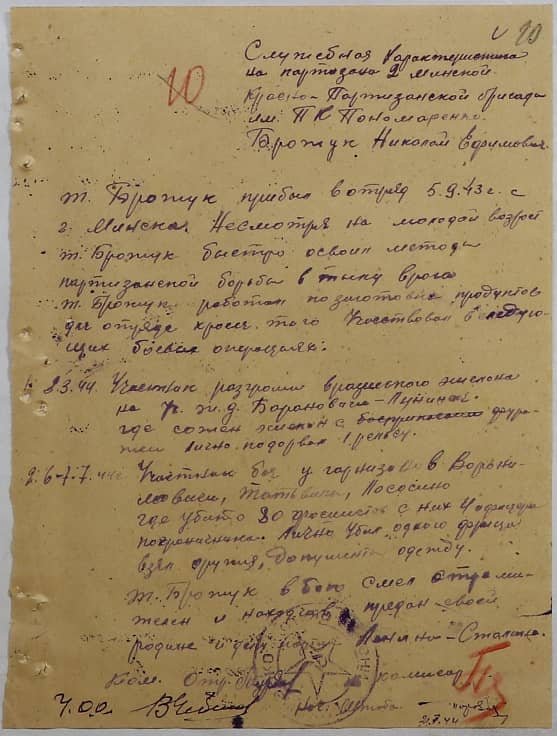 20
10
Служебная характеристика
на партизана 2 Минской
Красно-Партизанской бригады
им. П К Пономаренко.
Брожук Николай Ефимович.
т. Брожук прибыл в отряд 5.9.43 г. с
г. Минска. Несмотря на молодой возраст
т. Брожук быстро освоил методы
партизанской борьбы в тылу врага
т. Брожук работал по заготовке продуктов
для отряда кроме того Участвовал в следую-
щих боевых операциях:
1. 2.3.44. Участник разгрома вражеского эшелона
на ж.д. Барановичи-Лунинец.
где сожжен эшелон с фура-
жем лично подорвал 1 рельсу.
2. 6-7.7.44 г. Участник боя у гарнизонов
где убито 80 фашистов с них 4 офицера
пограничника. Лично убил одного фрица
взял оружия, документы одежду.
т. Брожук в бою смел стреми-
телен и находчив предан своей
родине и делу Ленина-Сталина.
Ком. Отр. комиссар
Н.О.О. Нач. Штаба